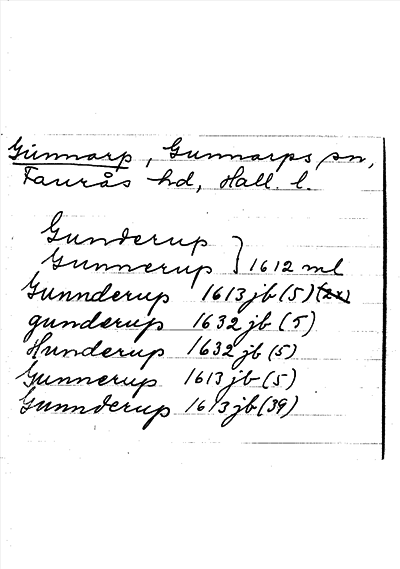 Gunnarp, Gunnarps sn,
Faurås hd, Hall. l.
Gunderup
Gunnerup } 1612 ml
Gunnderup 1613 jb (5) (2x)
gunderup 1632 jb (5)
Hunderup 1632 jb (5)
Gunnerup 1613 jb (5)
Gunnderup 1613 jb (39)